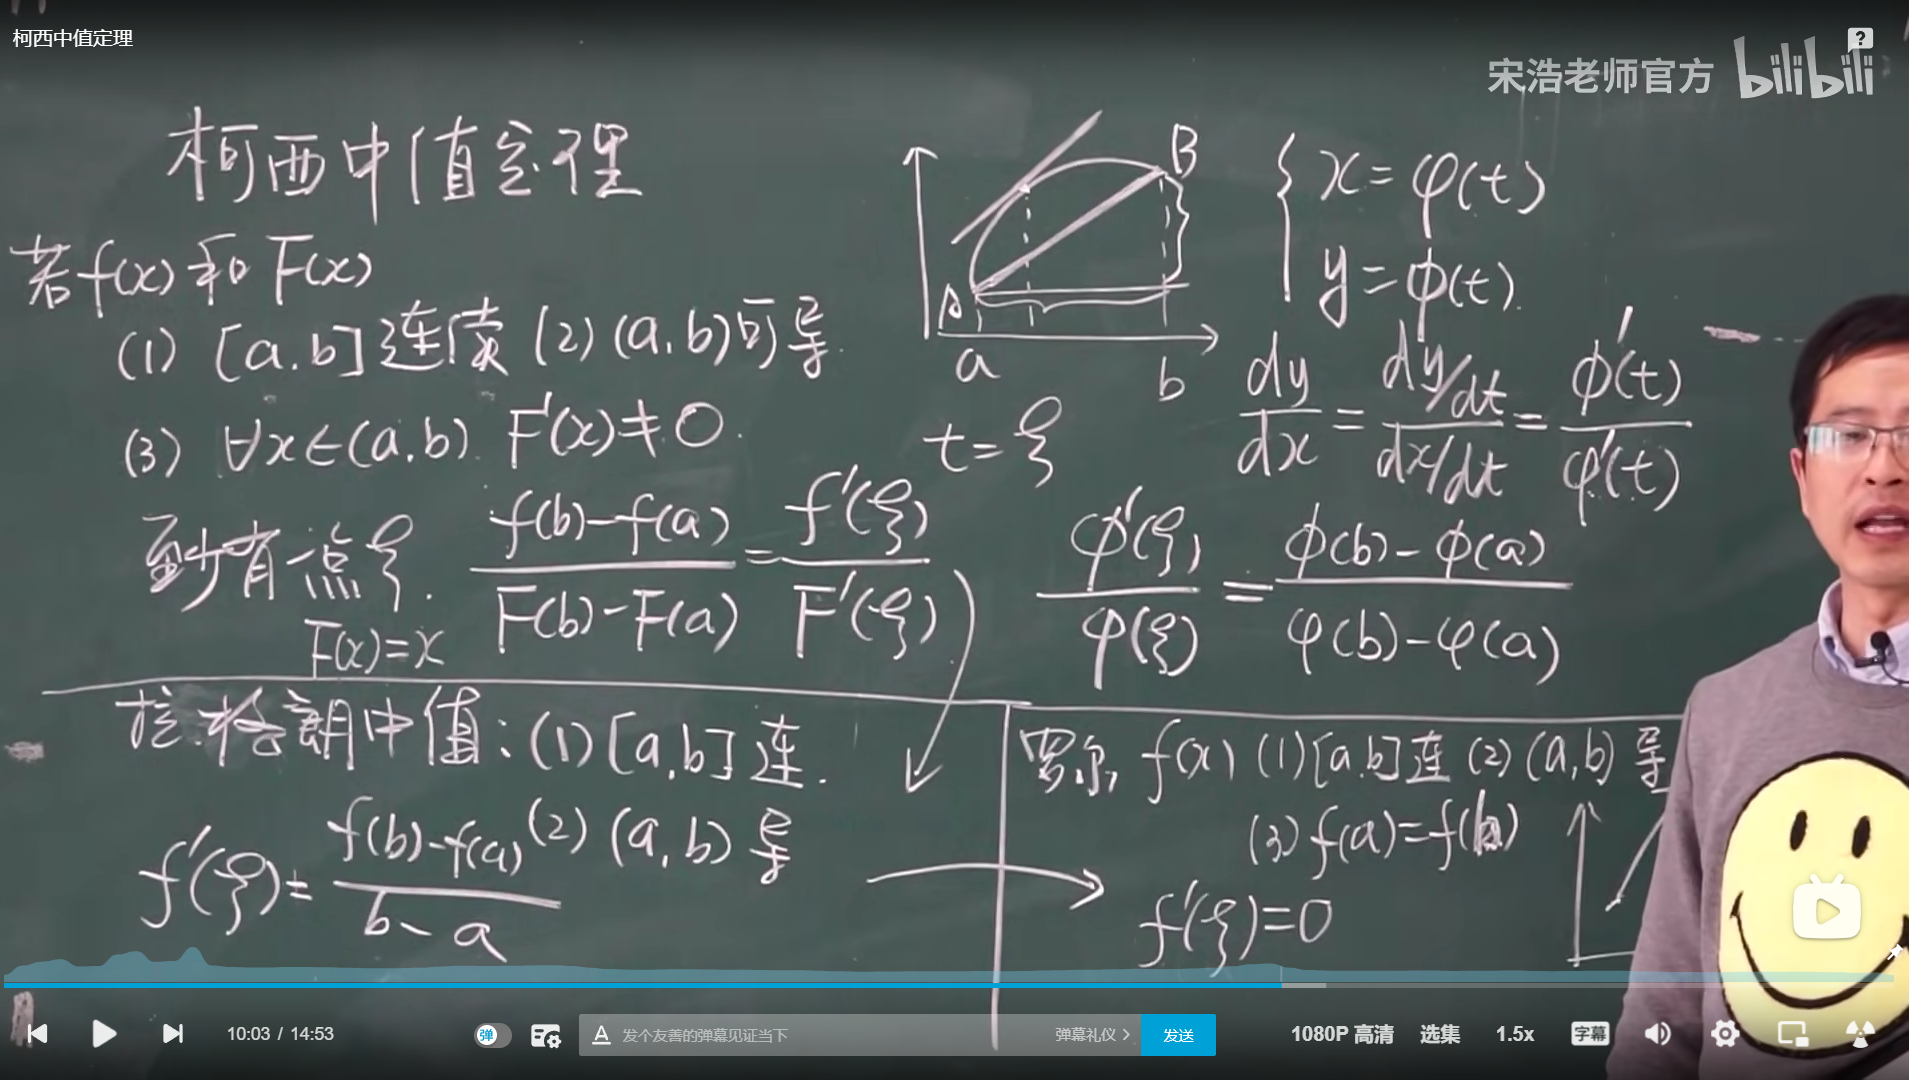 柯西中值定理
宋浩老师官方 bilibili
柯西中值定理
若f(x)和F(x)
(1) [a.b]连续 (2) (a,b)可导.
(3) ∀x∈(a,b). F'(x)≠0.
至少有一点ξ.
(f(b)-f(a))/(F(b)-F(a)) = f'(ξ)/F'(ξ)
F(x)=x
A
B
a
b
t=ξ
{ x=φ(t)
y=ϕ(t).
dy/dx = (dy/dt)/(dx/dt) = ϕ'(t)/φ'(t)
ϕ'(ξ)/φ(ξ) = (ϕ(b)-ϕ(a))/(φ(b)-φ(a))
拉格朗中值:(1)[a,b]连.
(2) (a,b)导
f'(ξ)=(f(b)-f(a))/(b-a)
罗尔, f(x) (1)[a.b]连 (2)(a,b)导
(3) f(a)=f(b)
f'(ξ)=0
10:03 / 14:53
弹
A 发个友善的弹幕见证当下
弹幕礼仪 >
发送
1080P 高清
选集
1.5x
字幕